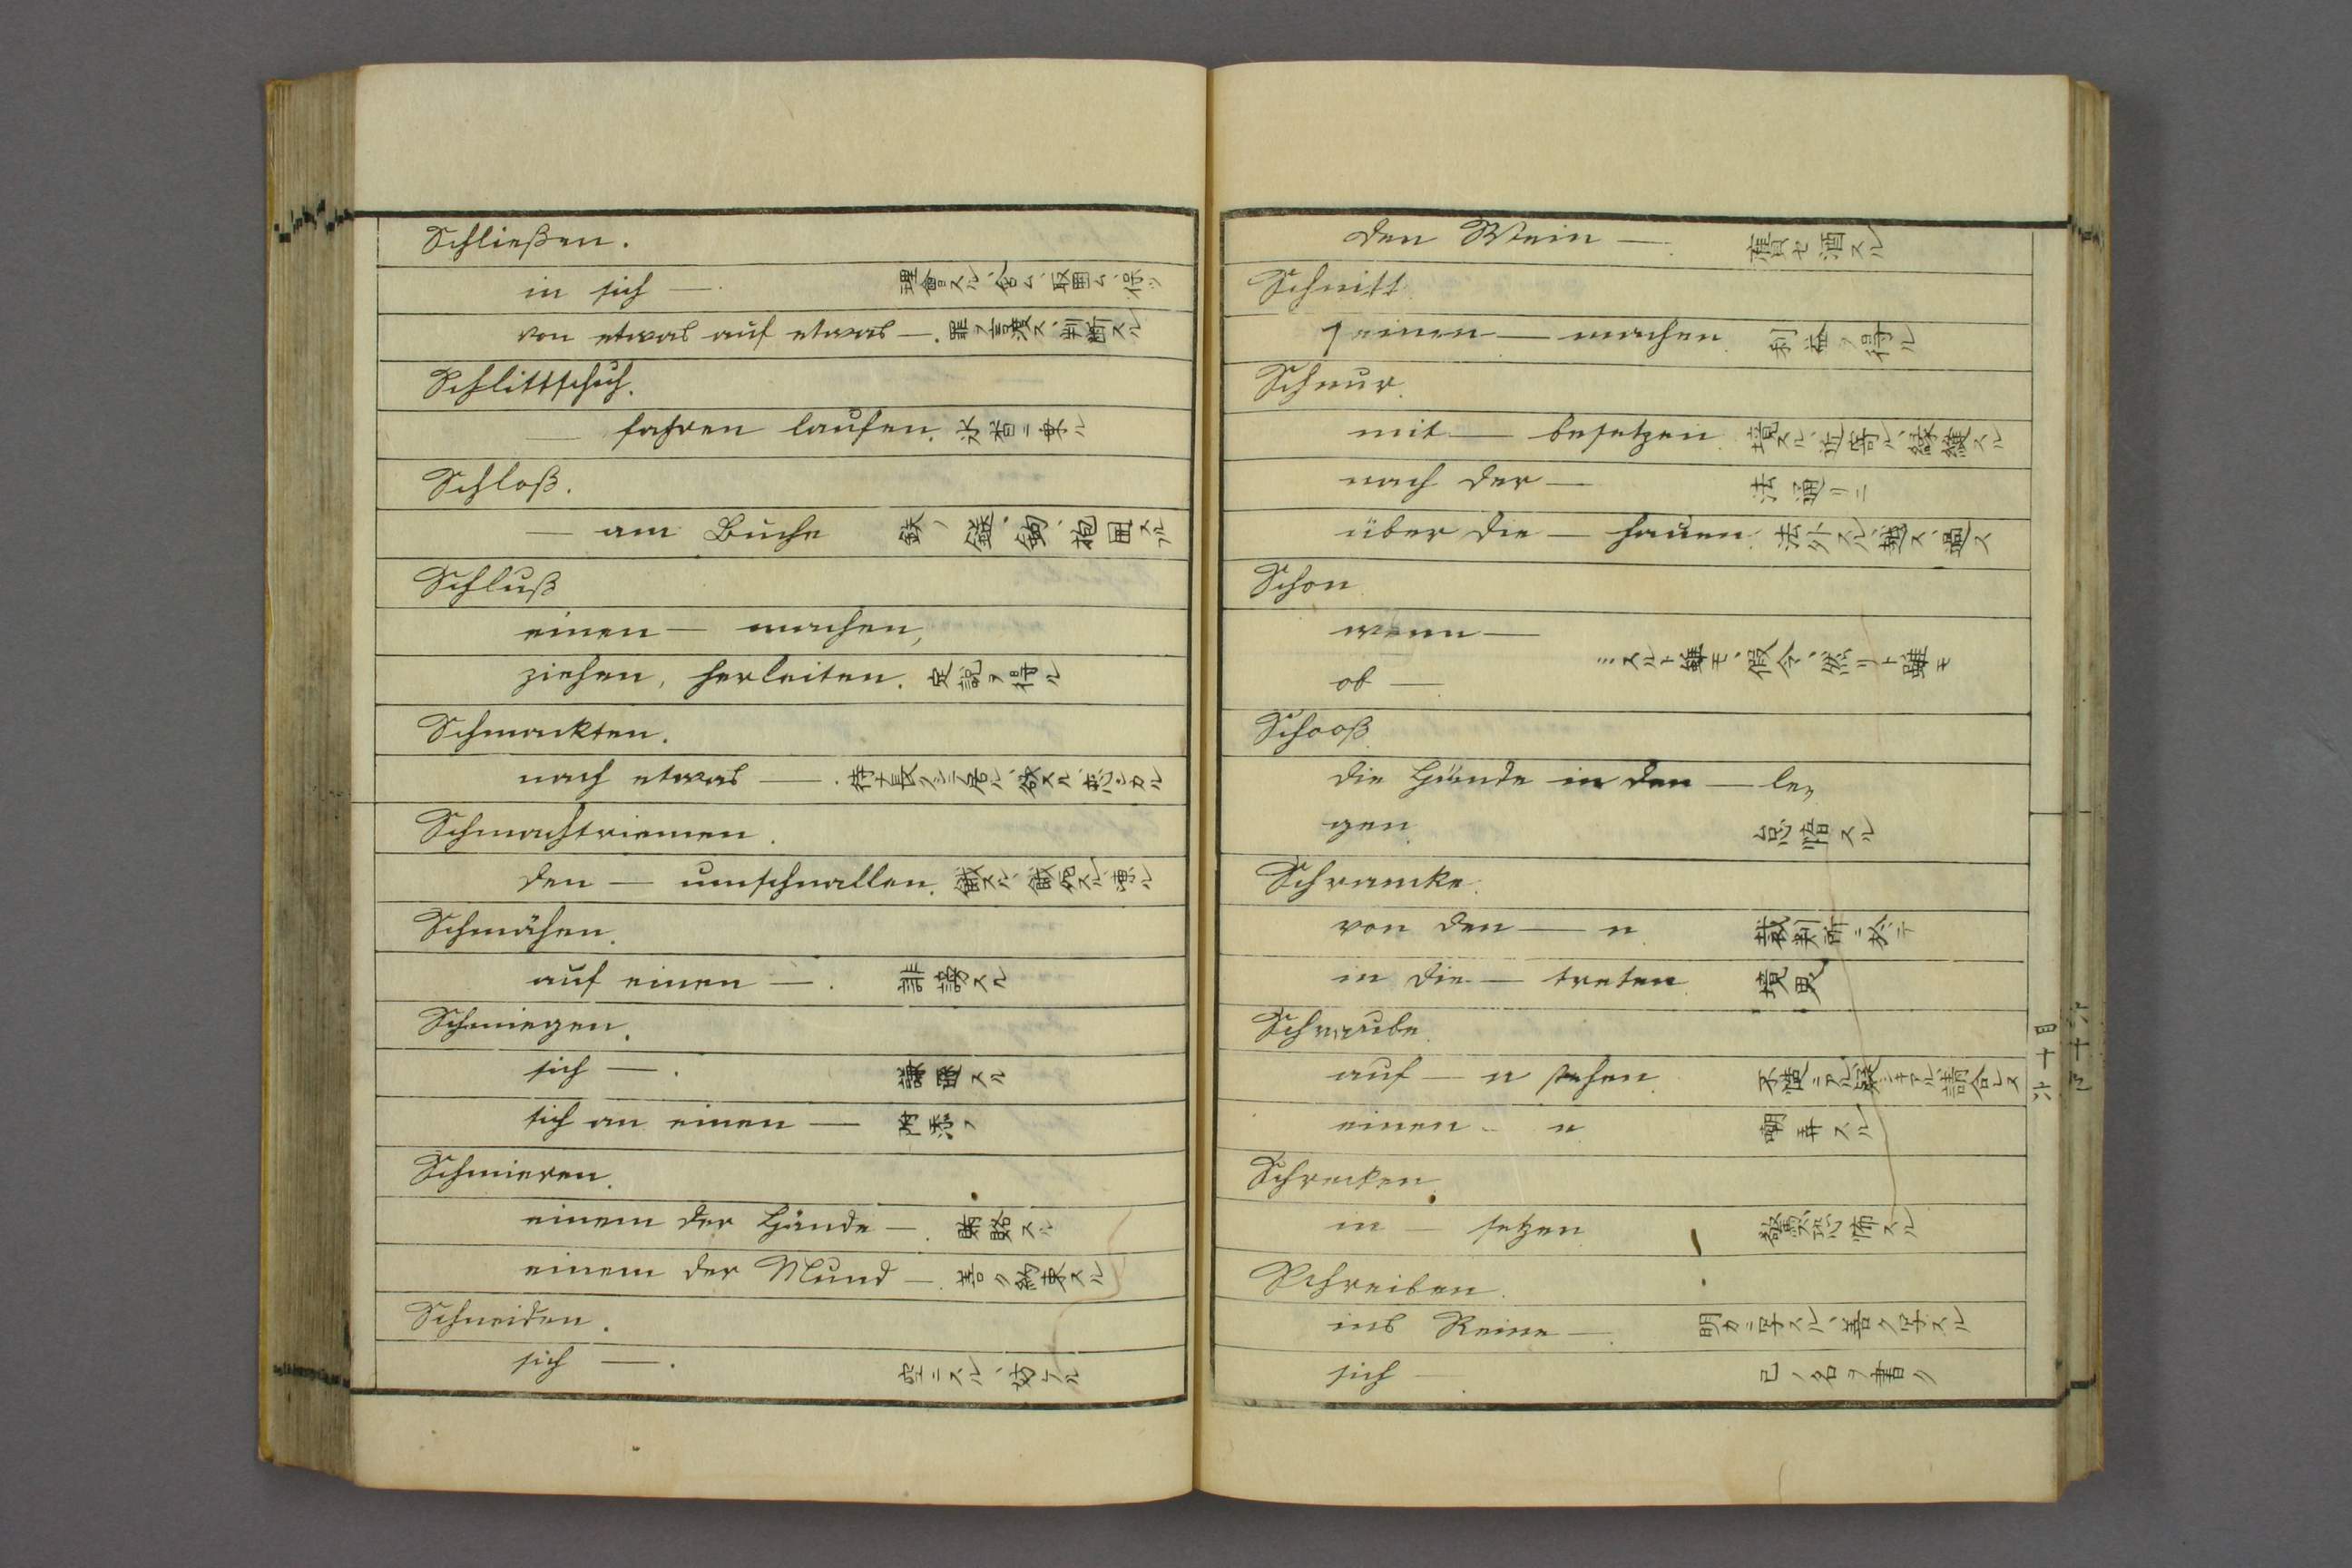 Schließen.
in sich — 理會スル、含ム、取囲ム、保ツ
von etwas auf etwas —. 罪ヲ言渡ス、判断スル
Schlittschuh.
— fahren laufen. 氷沓ニ乗ル
Schloß.
— am Buche 鉄ノ鎹、鉤、抱囲スル
Schluß
einen — machen,
ziehen, herleiten. 定説ヲ得ル
Schmackten.
nach etwas —.
Schmachtriemen.
den — umschnallen. 餓スル、餓死スル
Schmähen.
auf einen —. 誹謗スル
Schmiegen.
sich —. 謙退スル
sich an einen — 附添フ
Schmieren.
einem der Hände —. 賄賂スル
einem der Mund —. 善ク約束スル
Schneiden.
sich —. 空ニスル、妨ケル
den Wein —. 酒スル
Schnitt.
einen — machen. 利益ヲ得ル
Schnur.
mit — besetzen.
nach der — 法通リニ
über die — hauen. 法外スル、越ス、過ス
Schon
wenn —
ob — ニスルト雖モ、假令、然リト雖モ
Schooß.
die Hände in den — le,
gen. 怠惰スル
Schrancke.
von den — n. 裁判所ニ於テ
in die — treten.
Schraube.
auf — n stehen.
einen — n. 嘲弄スル
Schrecken.
in setzen 驚, 恐怖スル
Schreiben.
ins Reine —. 明カニ写スル、善ク写スル
sich —. 己ノ名ヲ書ク